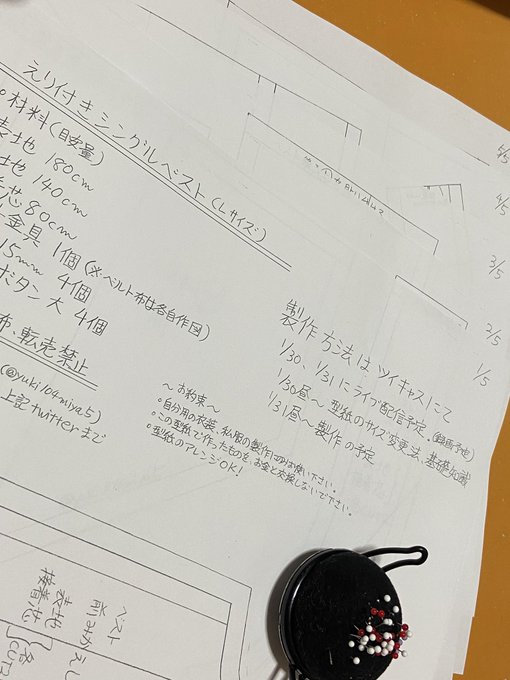 えり付きシングルベスト(Lサイズ)
材料(目安量)
表地 180cm
地 140cm
芯 80cm
金具 1個(※ベルト布は各自作図)
15mm 4個
ボタン大 4個
布、転売禁止
(@yuki104miya5)
上記twitterまで
〜お約束〜
○自分用の衣装、私服の製作にのみお使い下さい。
○この型紙で作ったものを、お金と交換しないで下さい。
○型紙のアレンジOK!
製作方法はツイキャスにて
1/30、1/31にライブ配信予定。(録画予地)
1/30昼〜 型紙のサイズ変更法、基礎知識
1/31昼〜製作の予定
5/5
4/5
3/5
2/5
1/5
ベスト
前みか
表地
接着芯